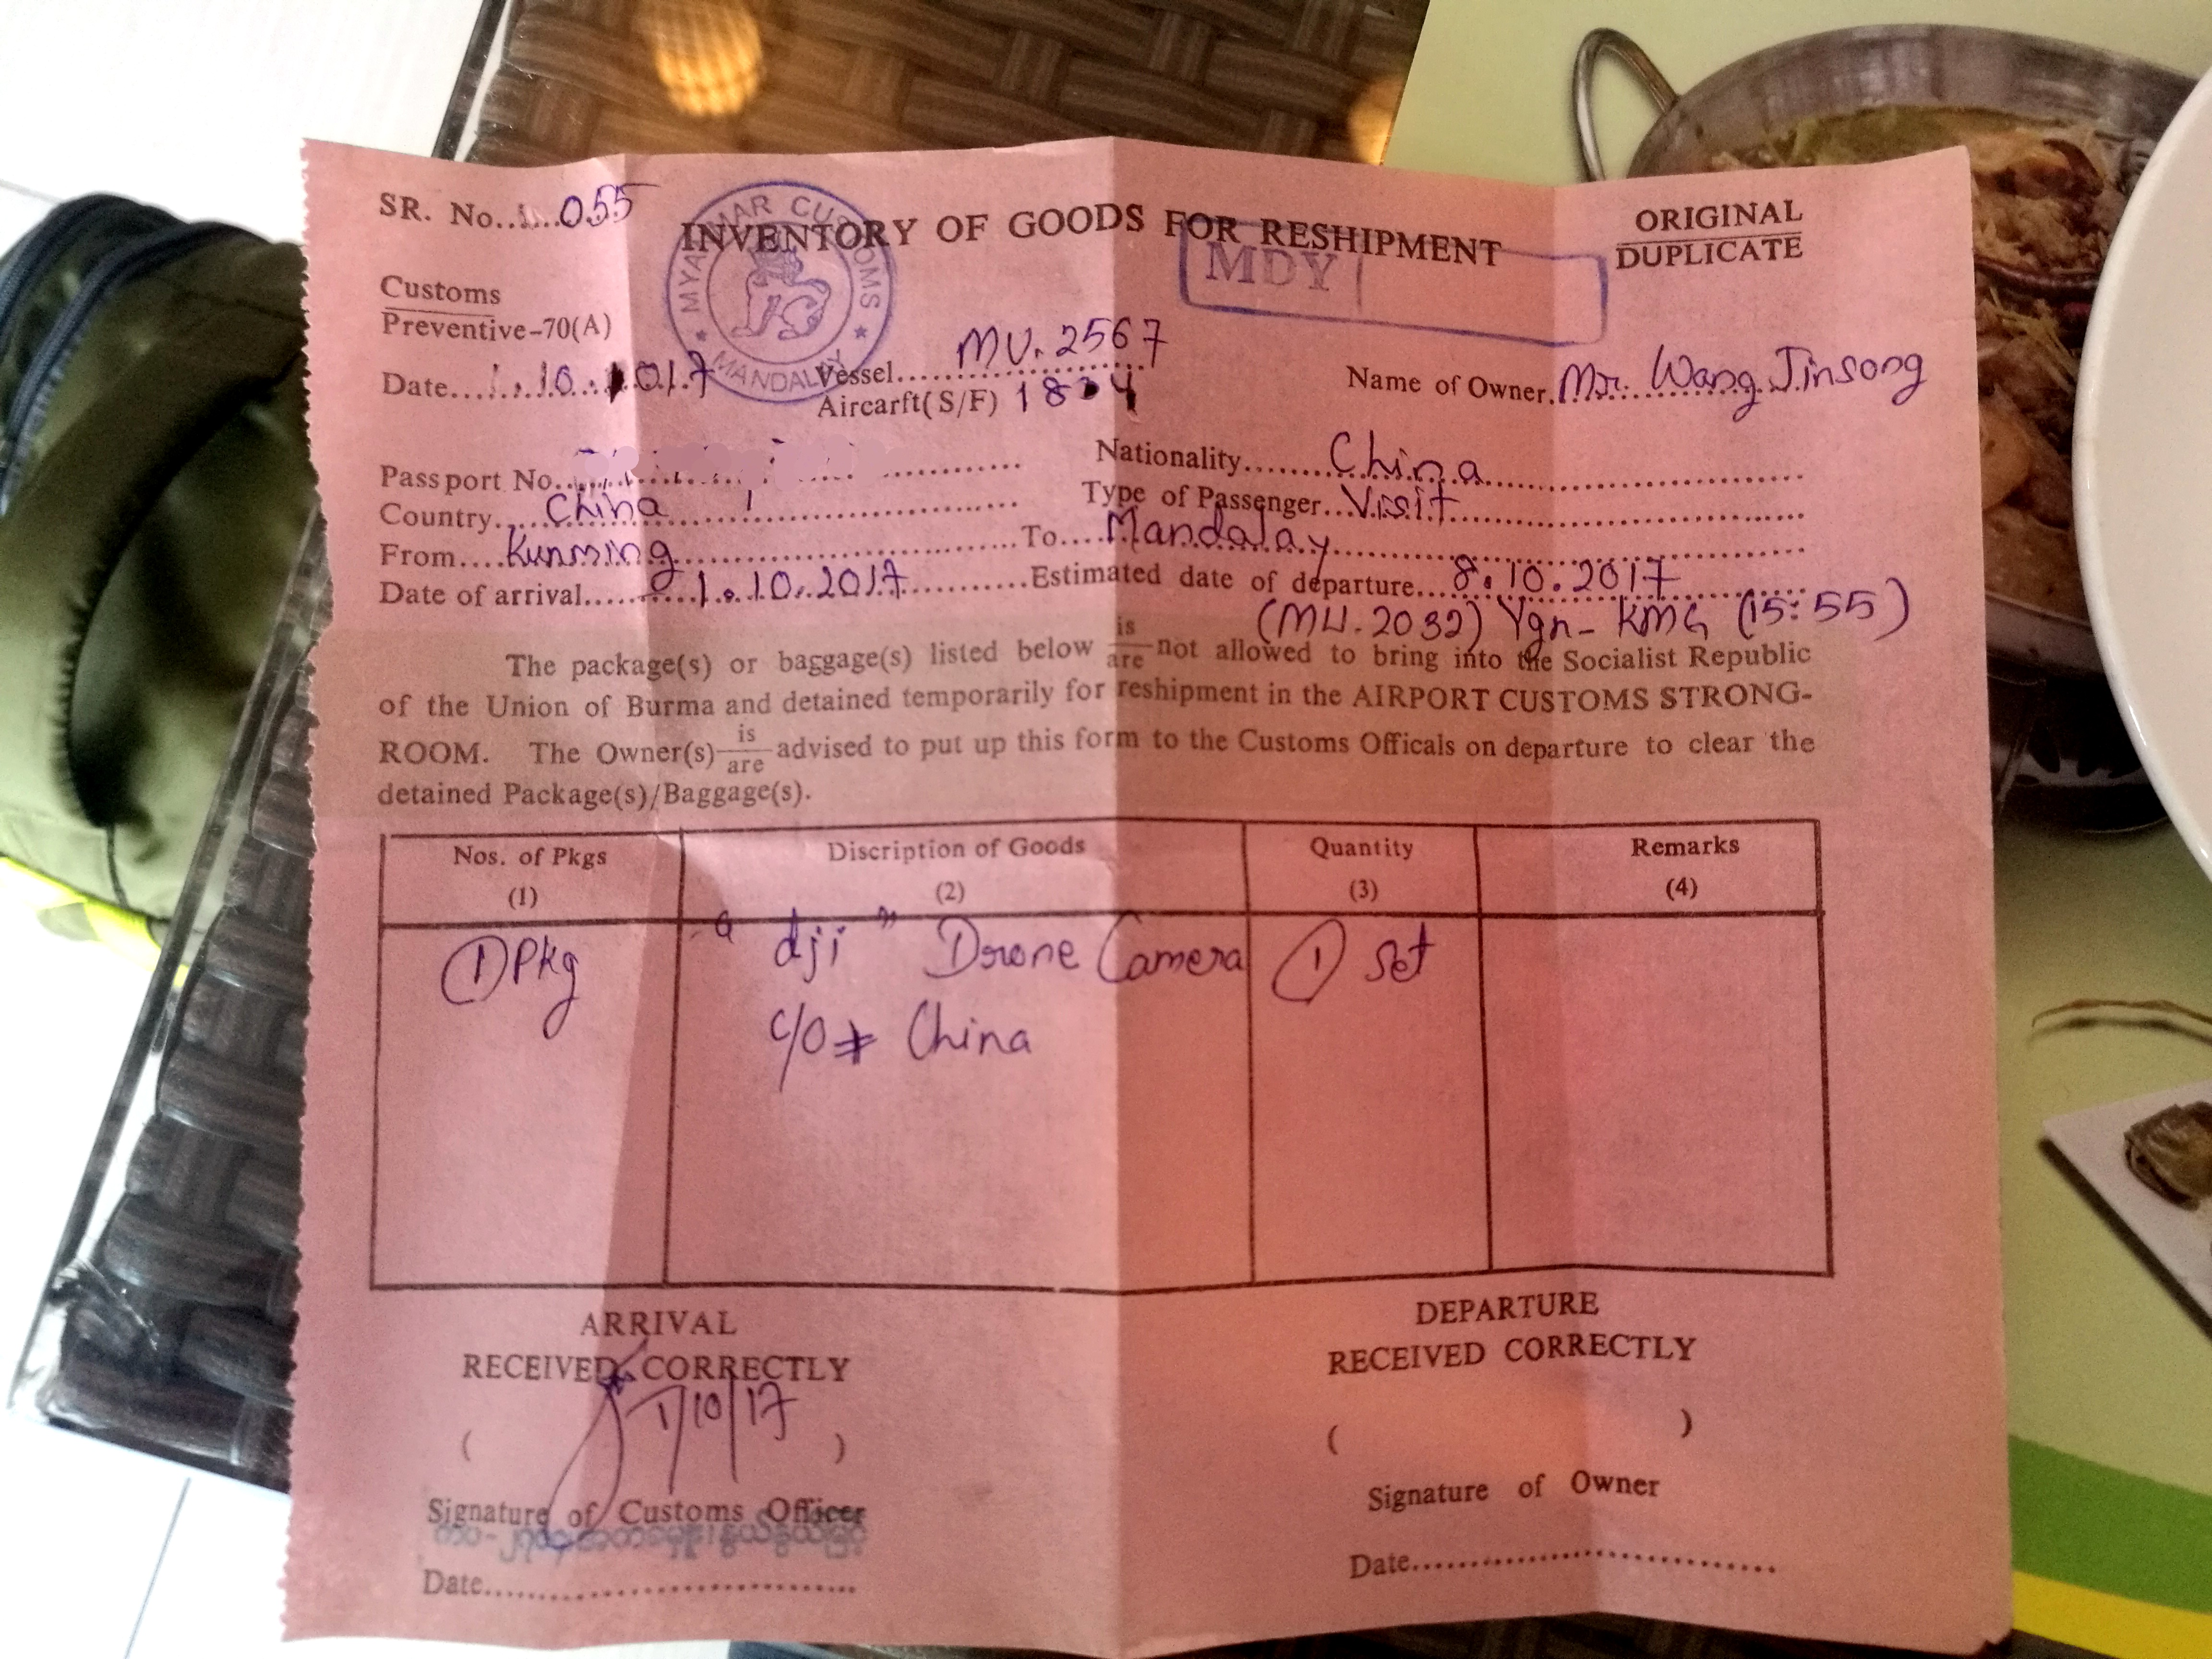 SR. No. 055
INVENTORY OF GOODS FOR RESHIPMENT
ORIGINAL
DUPLICATE
MYANMAR CUSTOMS
MANDALAY
MDY
Customs
Preventive-70(A)
Date 1.10.2017
Vessel MU.2567
Aircarft(S/F)
Name of Owner Mr. Wang Jinsong
Passport No.
Nationality China
Country China
Type of Passenger Visit
From Kunming To Mandalay
Date of arrival 1.10.2017 Estimated date of departure 8.10.2017
(MU.2032) Ygn- KMG (15:55)
The package(s) or baggage(s) listed below is/are not allowed to bring into the Socialist Republic
of the Union of Burma and detained temporarily for reshipment in the AIRPORT CUSTOMS STRONG-
ROOM. The Owner(s) is/are advised to put up this form to the Customs Officals on departure to clear the
detained Package(s)/Baggage(s).
Nos. of Pkgs Discription of Goods Quantity Remarks
(1) (2) (3) (4)
① Pkg "dji" Drone Camera ① Set
C/O China
ARRIVAL
RECEIVED CORRECTLY
1/10/17
( )
Signature of Customs Officer
Date
DEPARTURE
RECEIVED CORRECTLY
( )
Signature of Owner
Date